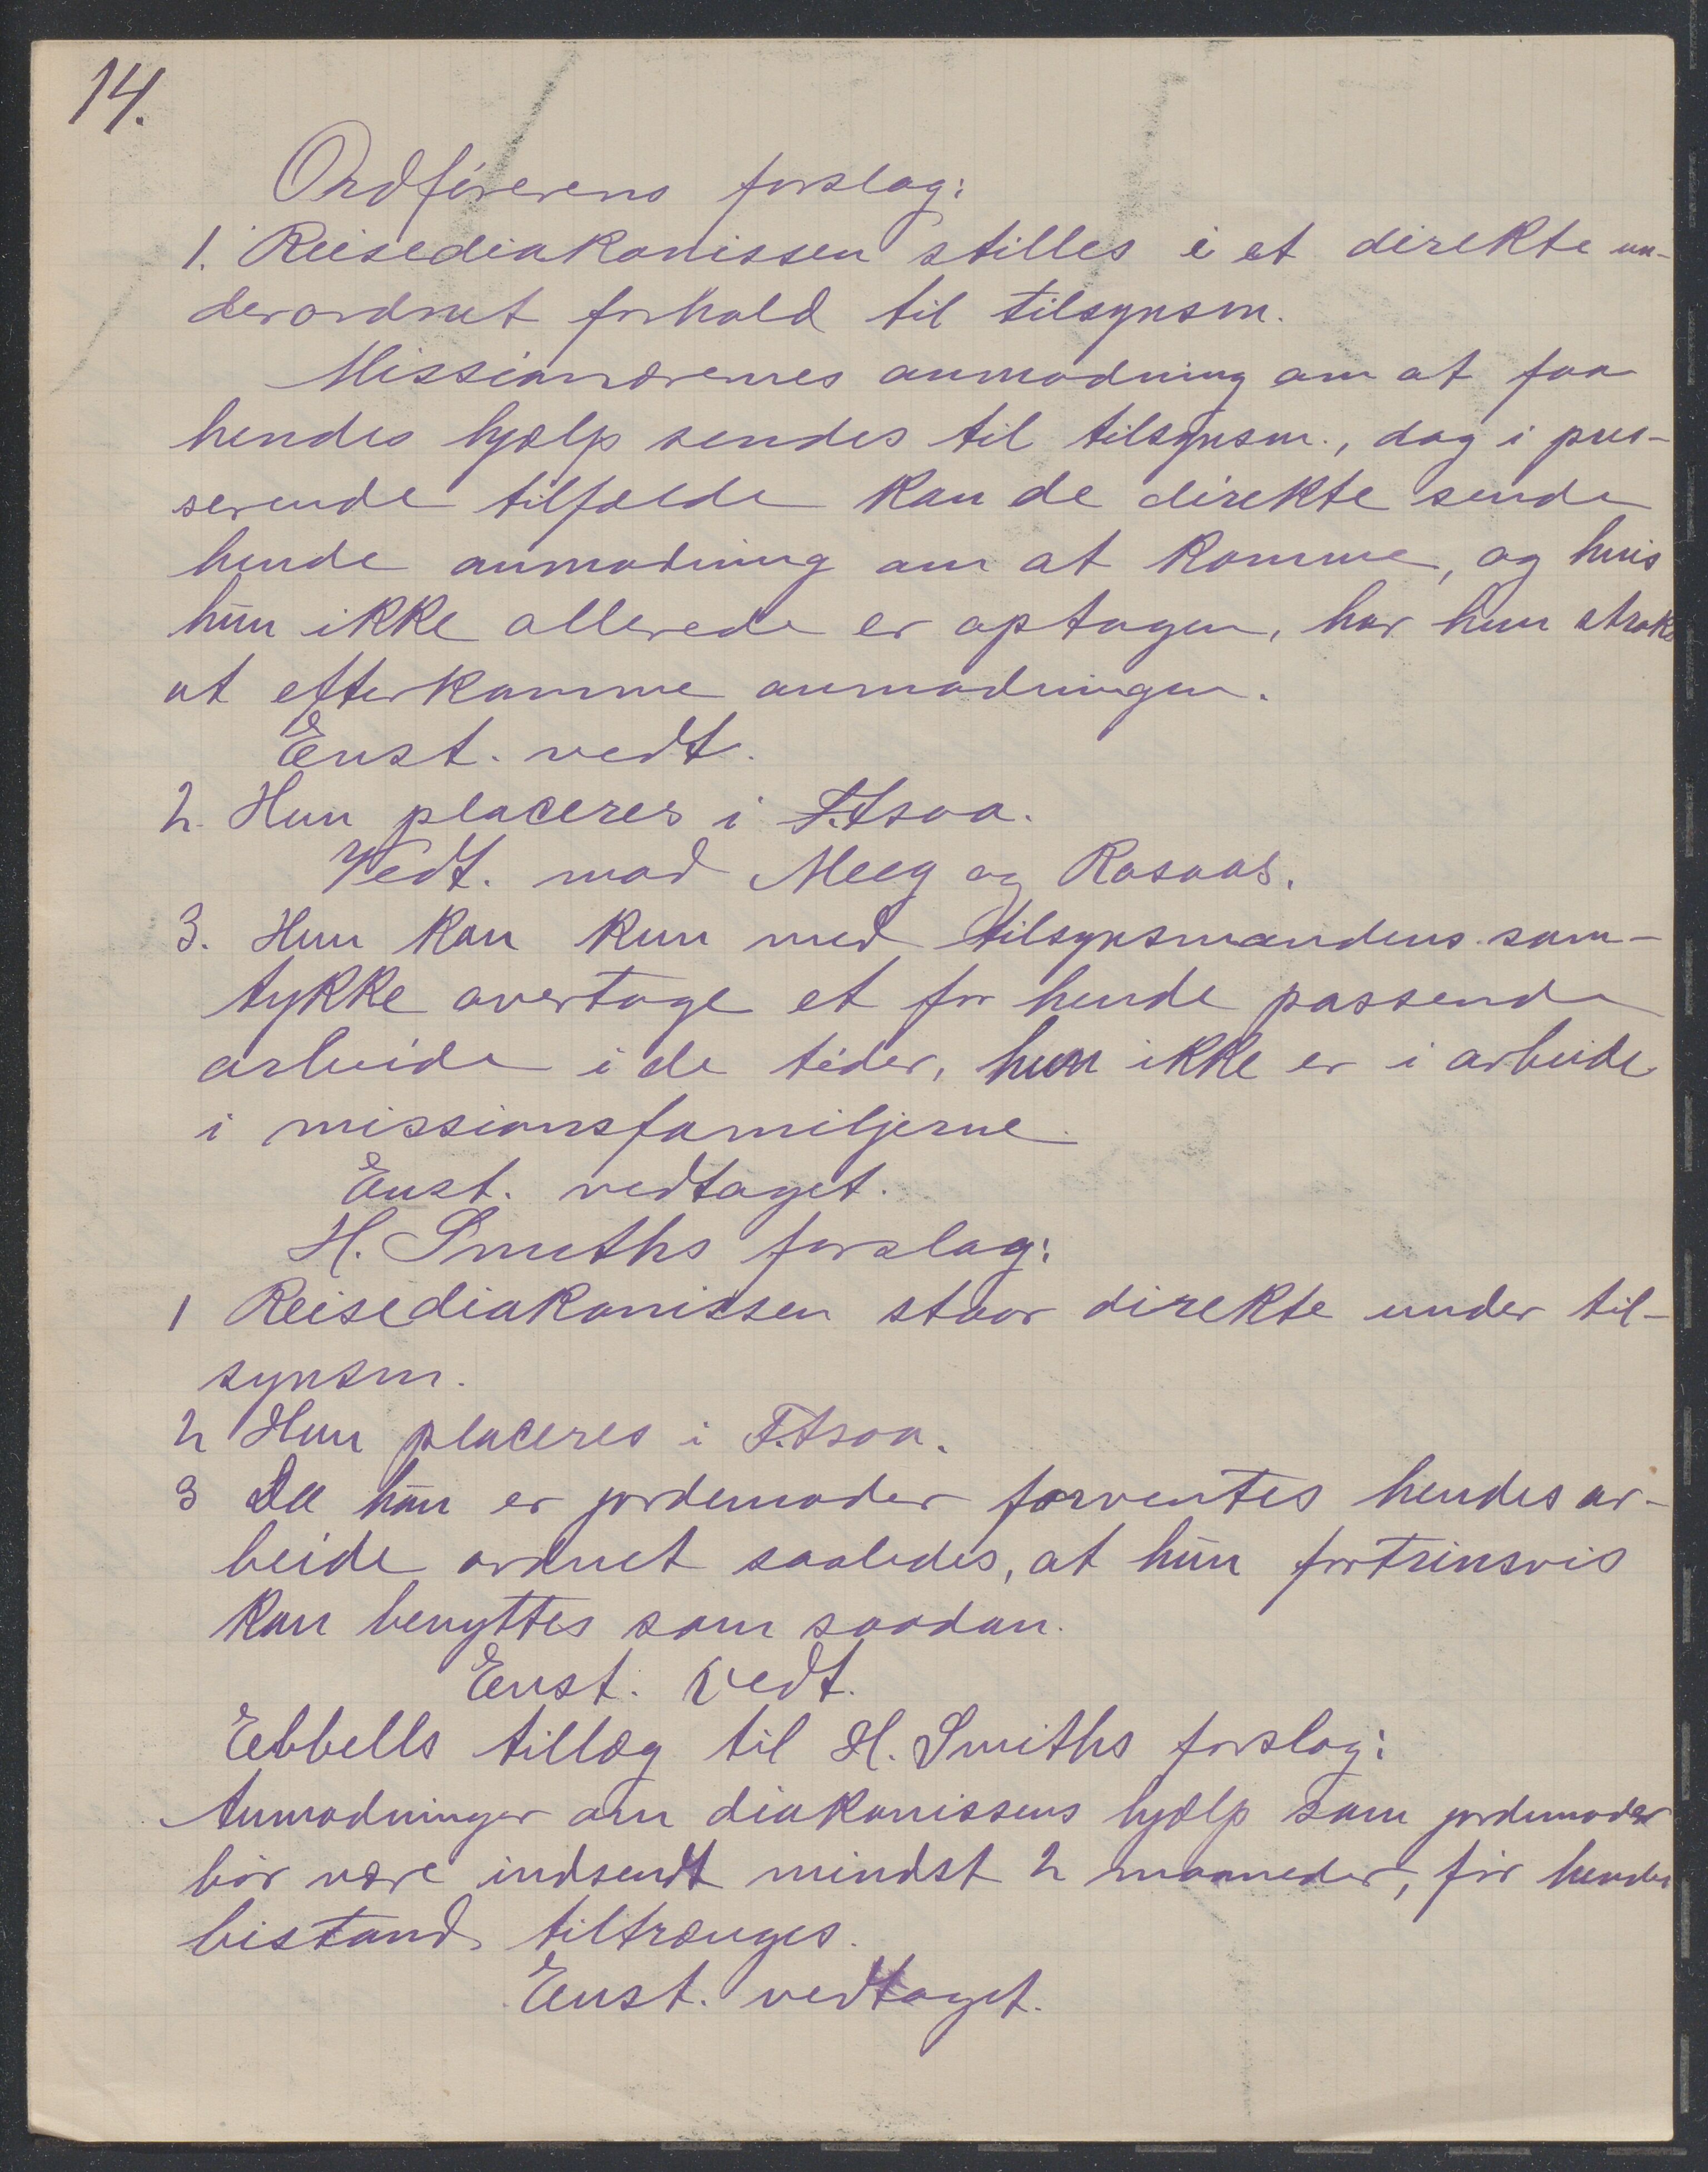 14.
Ordförerens forslag:
1. Reisediakonissen stilles i et direkte un-
derordnet forhold til tilsynsm.
Missionærernes anmodning om at faa
hendes hjælp sendes til tilsynsm., dog i pres-
serende tilfælde kan de direkte sende
hende anmodning om at komme, og hvis
hun ikke allerede er optagen, har hun straks
at efterkomme anmodningen.
Enst. vedt.
2. Hun placeres i F.tsoa.
Vedt. mod Meeg og Rosaas.
3. Hun kan kun med tilsynsmandens sam-
tykke overtage et for hende passende
arbeide i de tider, hun ikke er i arbeide
i missionsfamiljerne.
Enst. vedtaget.
H. Smiths forslag:
1 Reisediakonissen staar direkte under til-
synsm.
2 Hun placeres i F.tsoa.
3 Da hun er jordemoder forventes hendes ar-
beide ordnet saaledes, at hun fortrinsvis
kan benyttes som saadan.
Enst. vedt.
Ebbells tillæg til H. Smiths forslag:
Anmodninger om diakonissens hjælp som jordemoder
bör være indsendt mindst 2 maaneder, för hendes
bistand tiltrænges.
Enst. vedtaget.